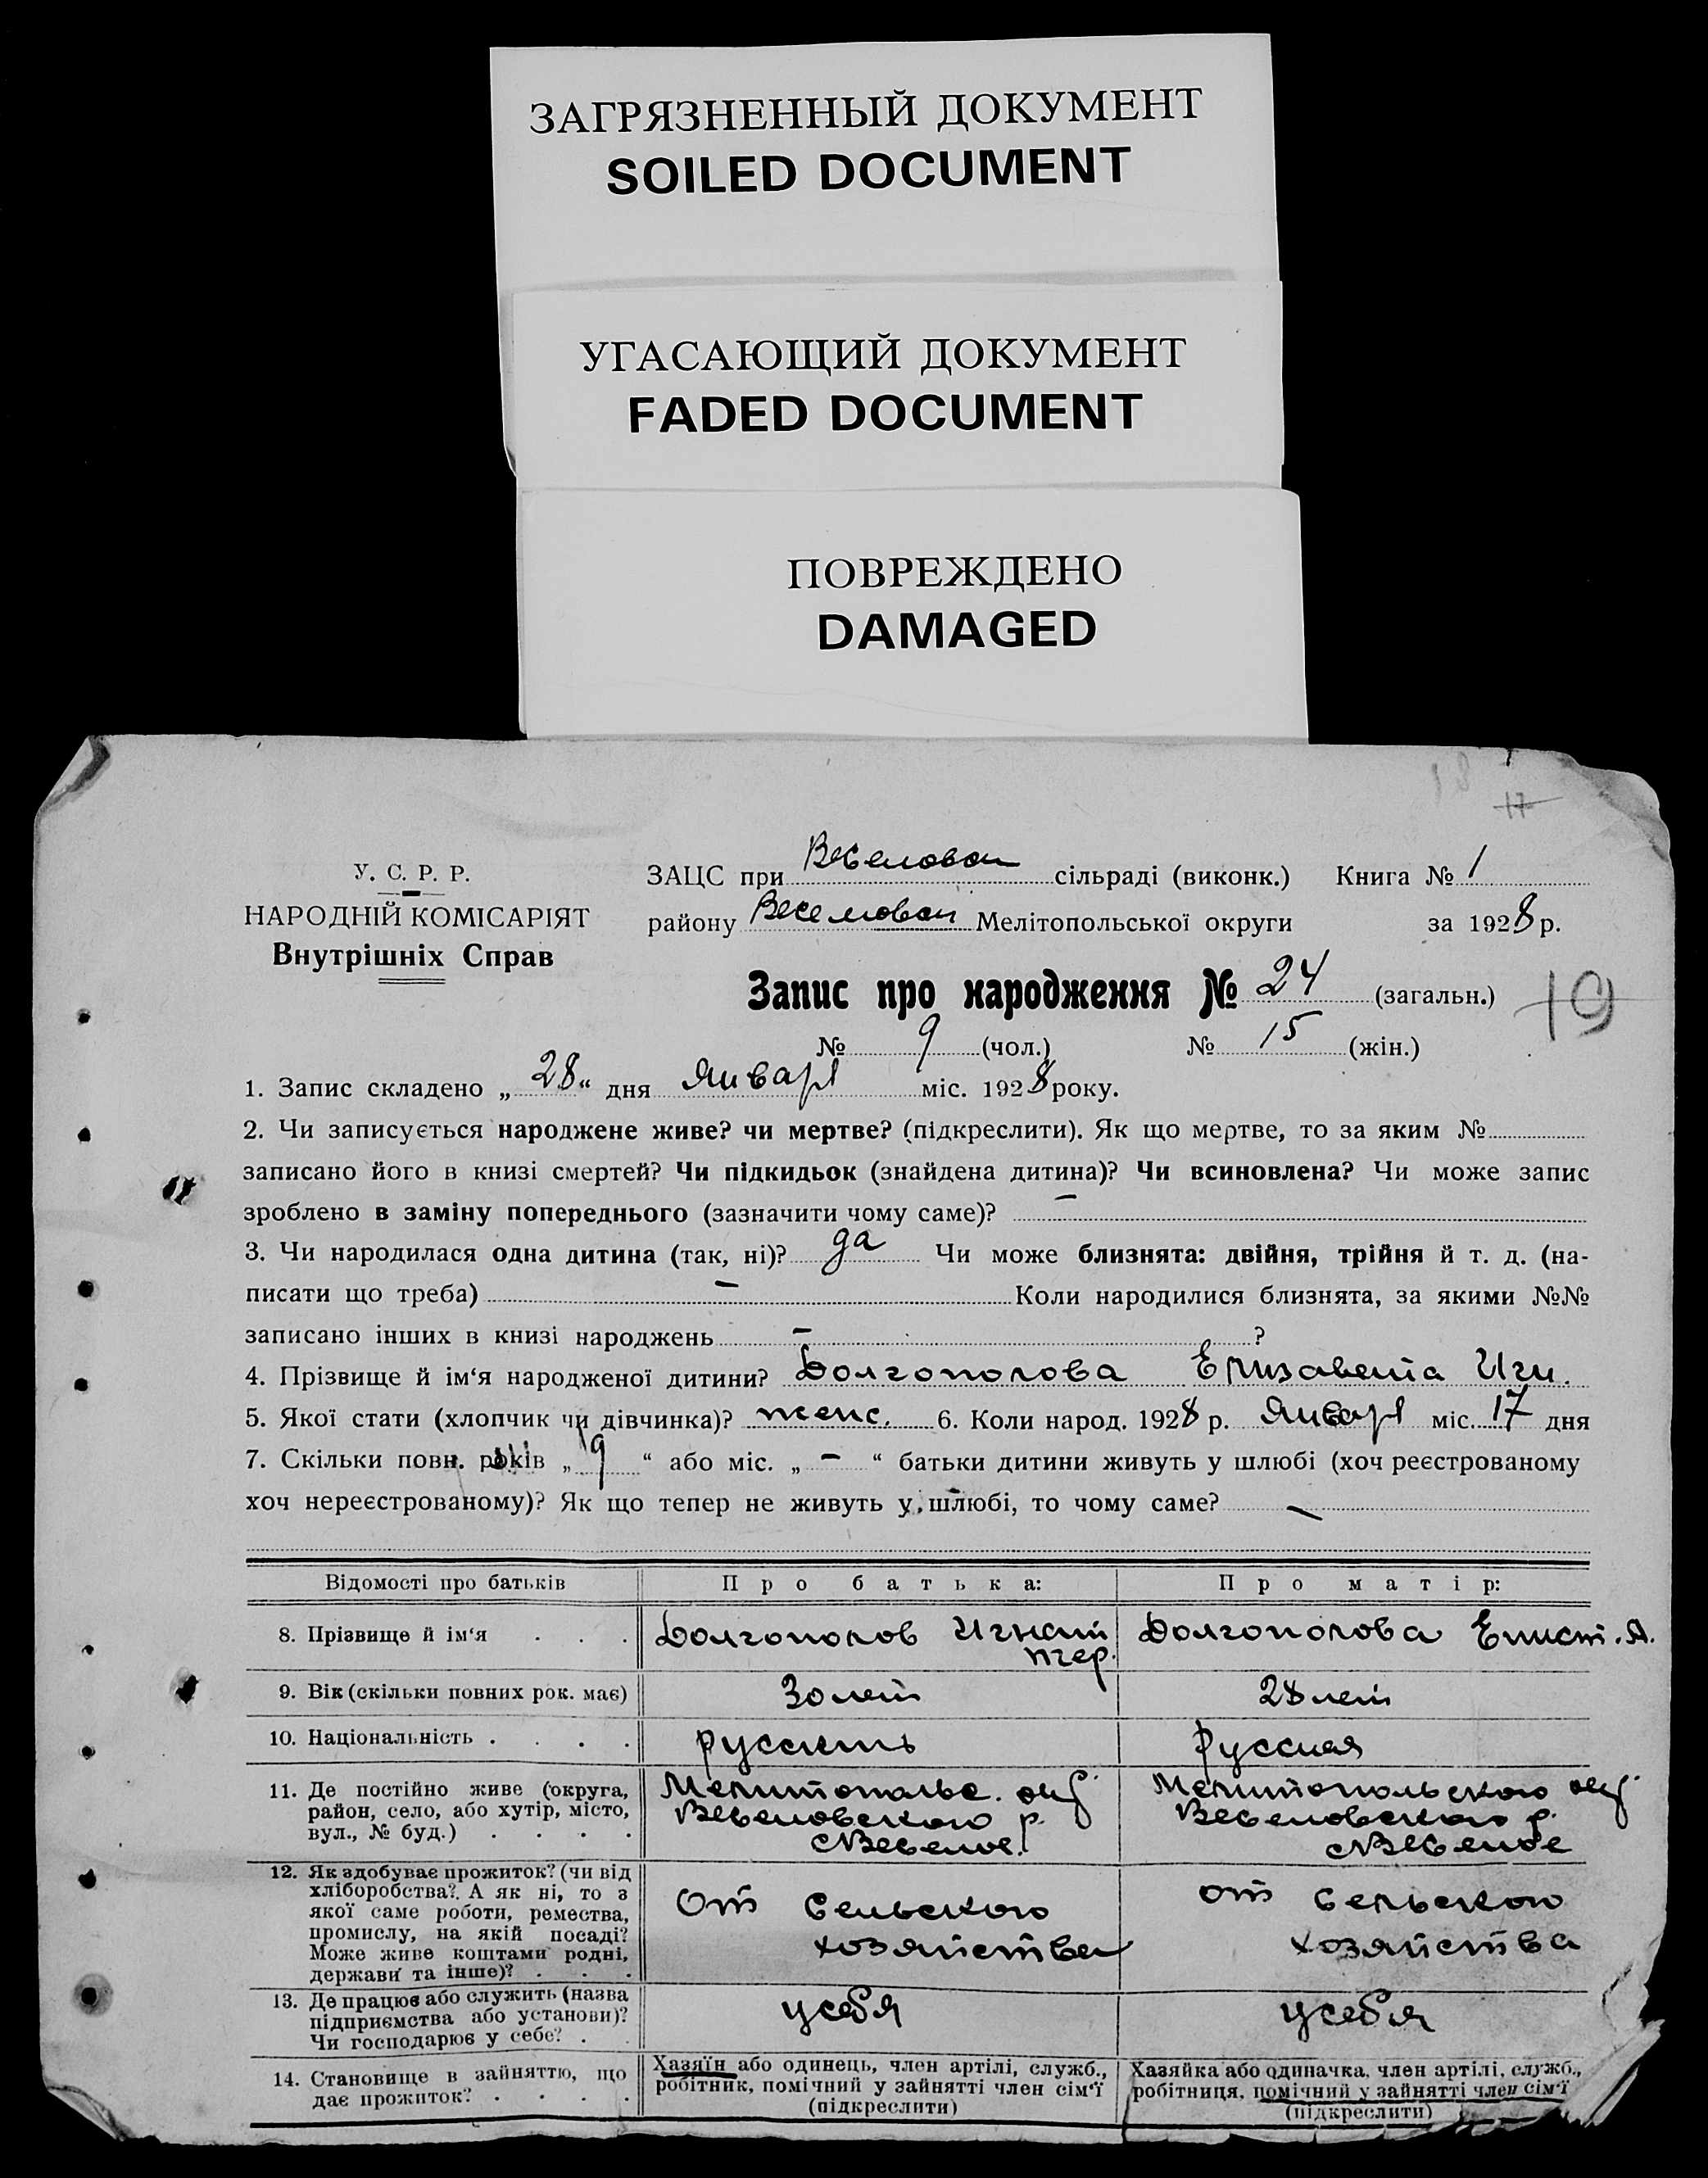 ЗАГРЯЗНЕННЫЙ ДОКУМЕНТ
SOILED DOCUMENT
УГАСАЮЩИЙ ДОКУМЕНТ
FADED DOCUMENT
ПОВРЕЖДЕНО
DAMAGED
18
17
У. С. Р. Р.
НАРОДНІЙ КОМІСАРІЯТ
Внутрішніх Справ
ЗАЦС при Веселовск сільраді (виконк.) Книга № 1
району Веселовск Мелітопольської округи за 1928 р.
Запис про народження № 24 (загальн.)
19
№ 9 (чол.) № 15 (жін.)
1. Запис складено „ 28 “ дня Января міс. 1928 року.
2. Чи записується народжене живе? чи мертве? (підкреслити). Як що мертве, то за яким №
записано його в книзі смертей? Чи підкидьок (знайдена дитина)? Чи всиновлена? Чи може запис
зроблено в заміну попереднього (зазначити чому саме)? –
3. Чи народилася одна дитина (так, ні)? да Чи може близнята: двійня, трійня й т. д. (на-
писати що треба) – Коли народилися близнята, за якими №№
записано інших в книзі народжень – ?
4. Прізвище й ім‘я народженої дитини? Долгополова Елизавета Игн.
5. Якої стати (хлопчик чи дівчинка)? женс. 6. Коли народ. 1928 р. Января міс. 17 дня
7. Скільки повн. років „ 9 “ або міс. „ – “ батьки дитини живуть у шлюбі (хоч реєстрованому
хоч нереєстрованому)? Як що тепер не живуть у шлюбі, то чому саме? –
Відомості про батьків Про батька: Про матір:
8. Прізвище й ім‘я . . . Долгополов Игнат Долгополова Епист. А.
9. Вік (скільки повних рок. має) 30 лет 28 лет
10. Національність . . . . русский русская
11. Де постійно живе (округа, Мелитопольс. окр. Мелитопольского окр.
район, село, або хутір, місто, Веселовского р. Веселовского р.
вул., № буд.) . . . . с Веселое с Веселое
12. Як здобуває прожиток? (чи від
хліборобства?. А як ні, то з
якої саме роботи, ремества, От сельского от сельского
промислу, на якій посаді?
Може живе коштами родні, хозяйства хозяйства
держави та інше)? . . .
13. Де працює або служить (назва
підприємства або установи)? у себя у себя
Чи господарює у себе? . .
14. Становище в зайняттю, що Хазяїн або одинець, член артілі, служб., Хазяйка або одиначка, член артілі, служб.,
дає прожиток? . . . робітник, помічний у зайнятті член сім‘ї робітниця, помічний у зайнятті член сім‘ї
(підкреслити) (підкреслити)